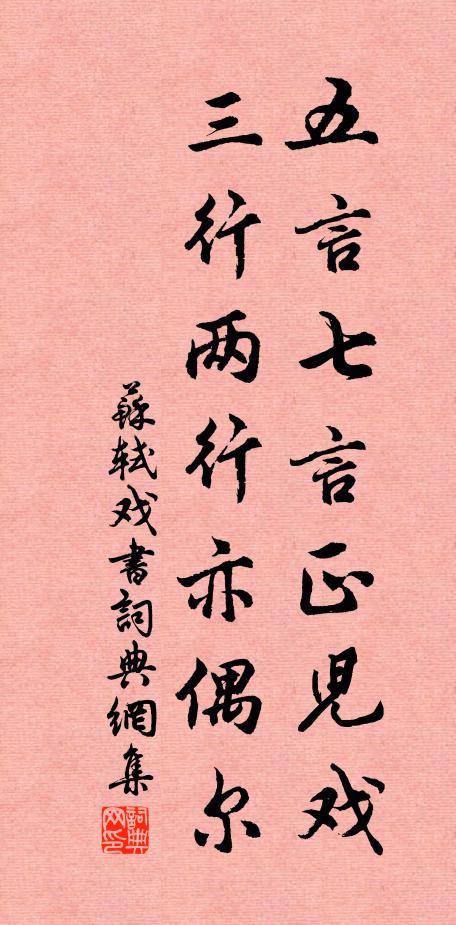 五言七言正児戏
三行两行亦偶尔
蘇轼戏書詞典網集
詞典网印